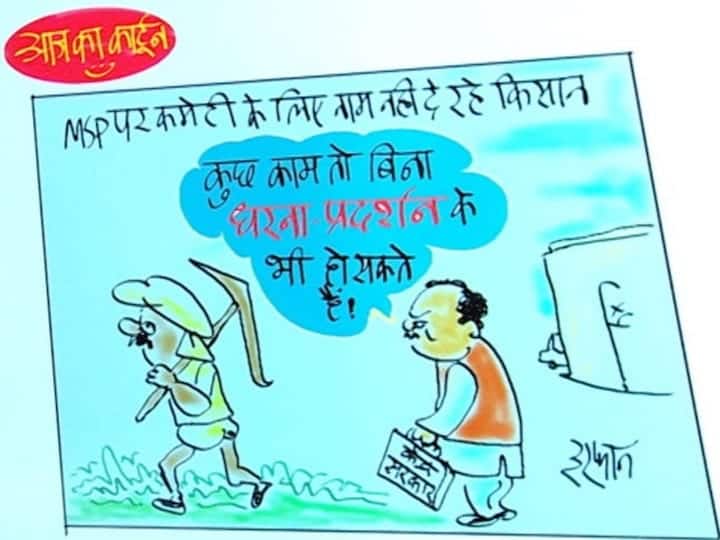 आज का कार्टून
MSP पर कमेटी के लिए नाम नहीं दे रहे किसान
कुछ काम तो बिना
धरना-प्रदर्शन के
भी हो सकते
हैं!
केन्द्र
सरकार
इरफान